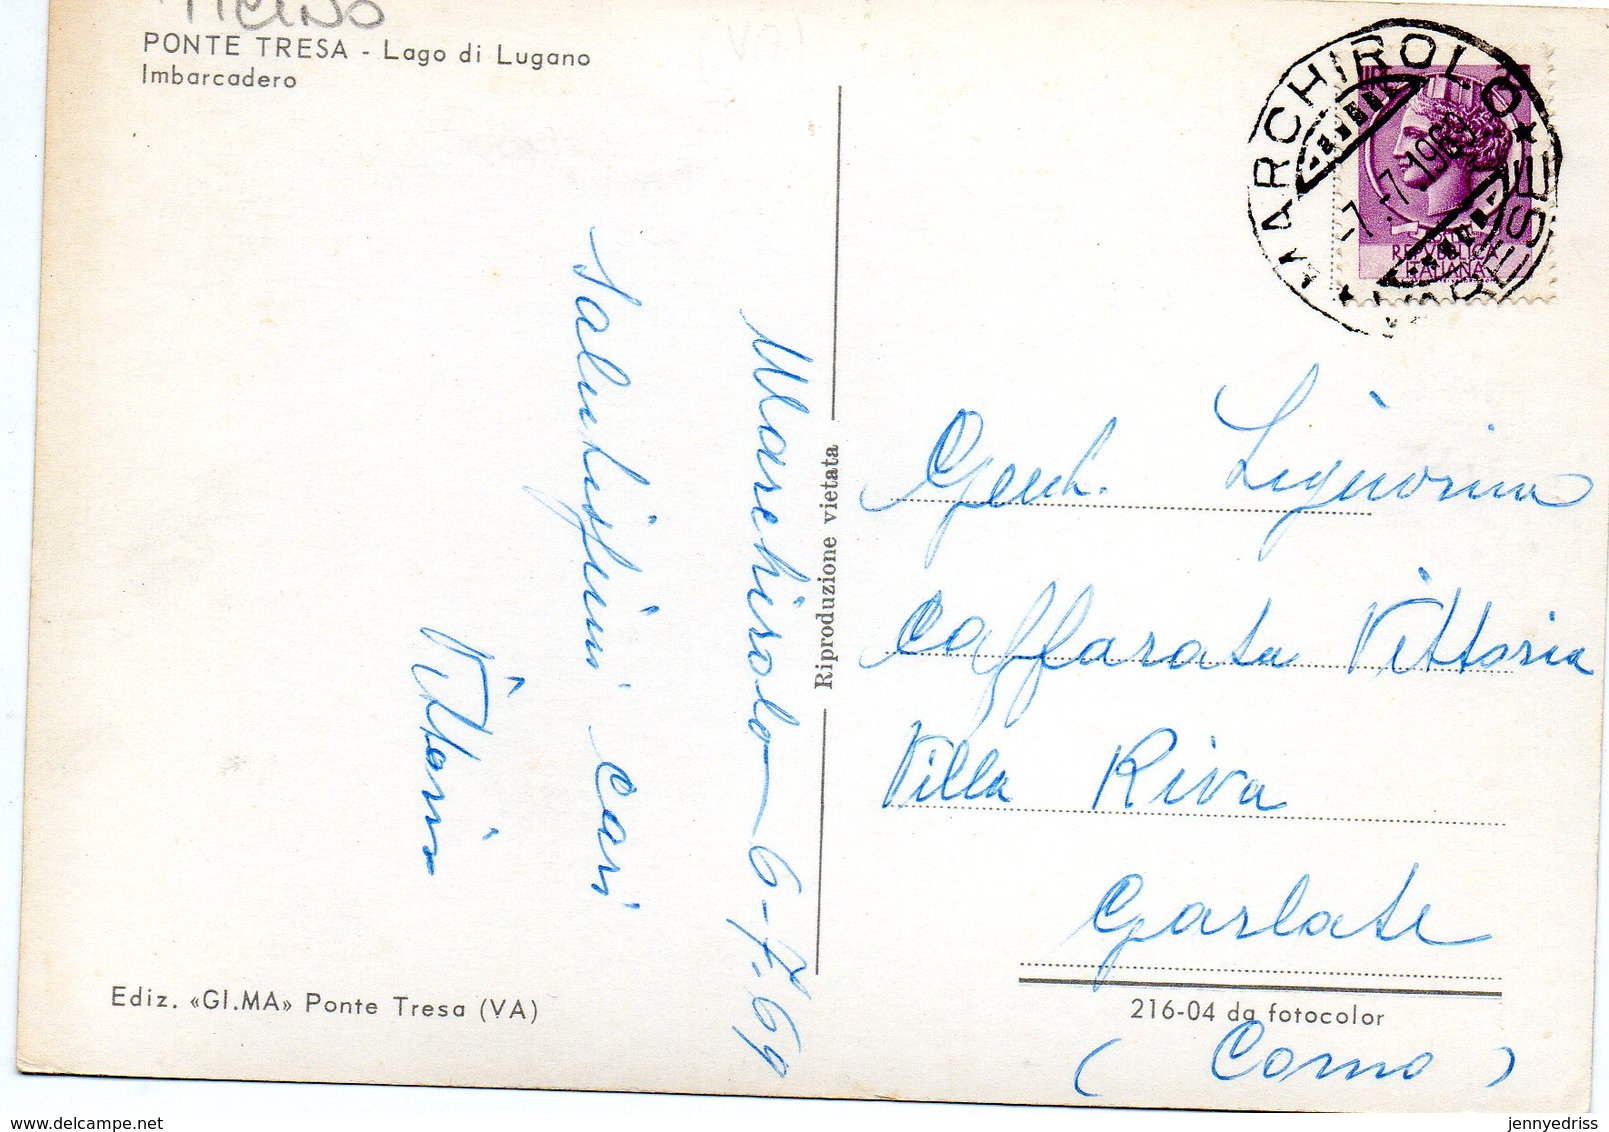 TICINO
PONTE TRESA - Lago di Lugano
Imbarcadero
(VA)
MARCHIROLO
VARESE
7.-7.1969
LIRE
REPVBBLICA
ITALIANA
Marchirolo 6-7.69
Salutissimi cari
Vittoria
Riproduzione vietata
Gent. Signorina
Caffarata Vittoria
Villa Riva
Garlate
(Como)
Ediz. «GI.MA» Ponte Tresa (VA)
216-04 da fotocolor
jennyedriss